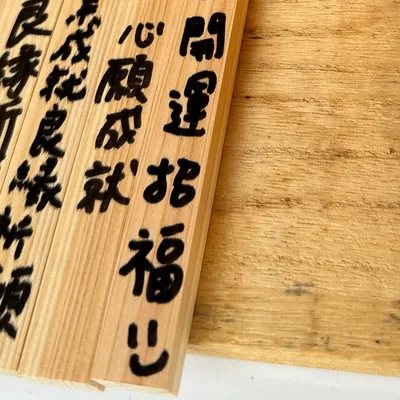 開運招福
心願成就
成就良縁祈願
良縁祈